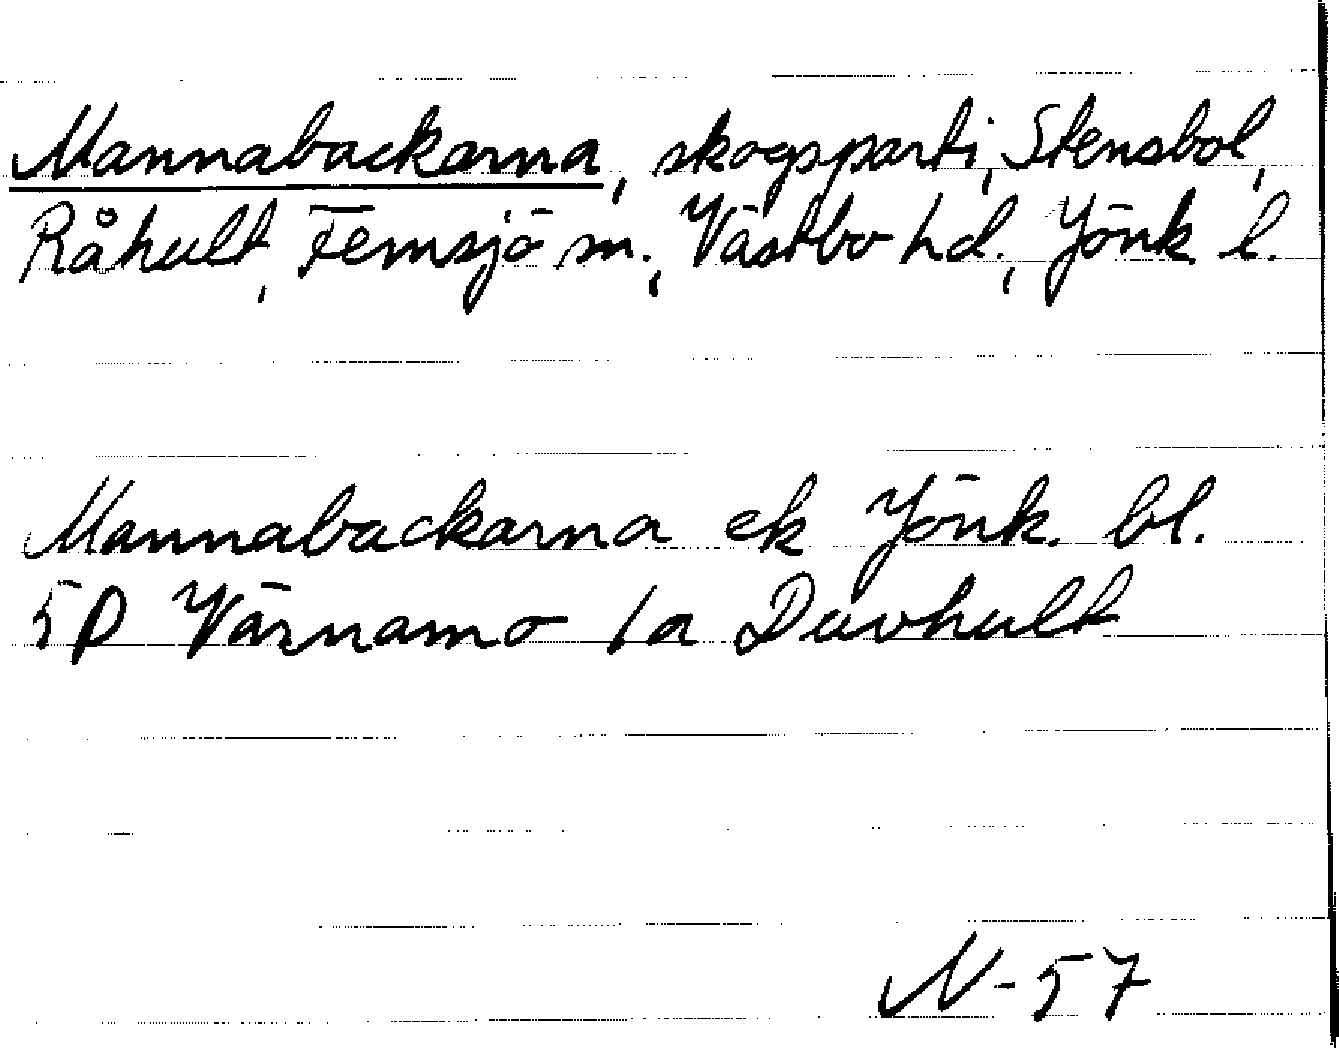 Mannabackarna, skogsparti, Stensbol,
Råhult, Femsjö sn., Västbo hd., Jönk l.
Mannabackarna ek Jönk. bl.
5D Värnamo 1a Duvhult
N-57